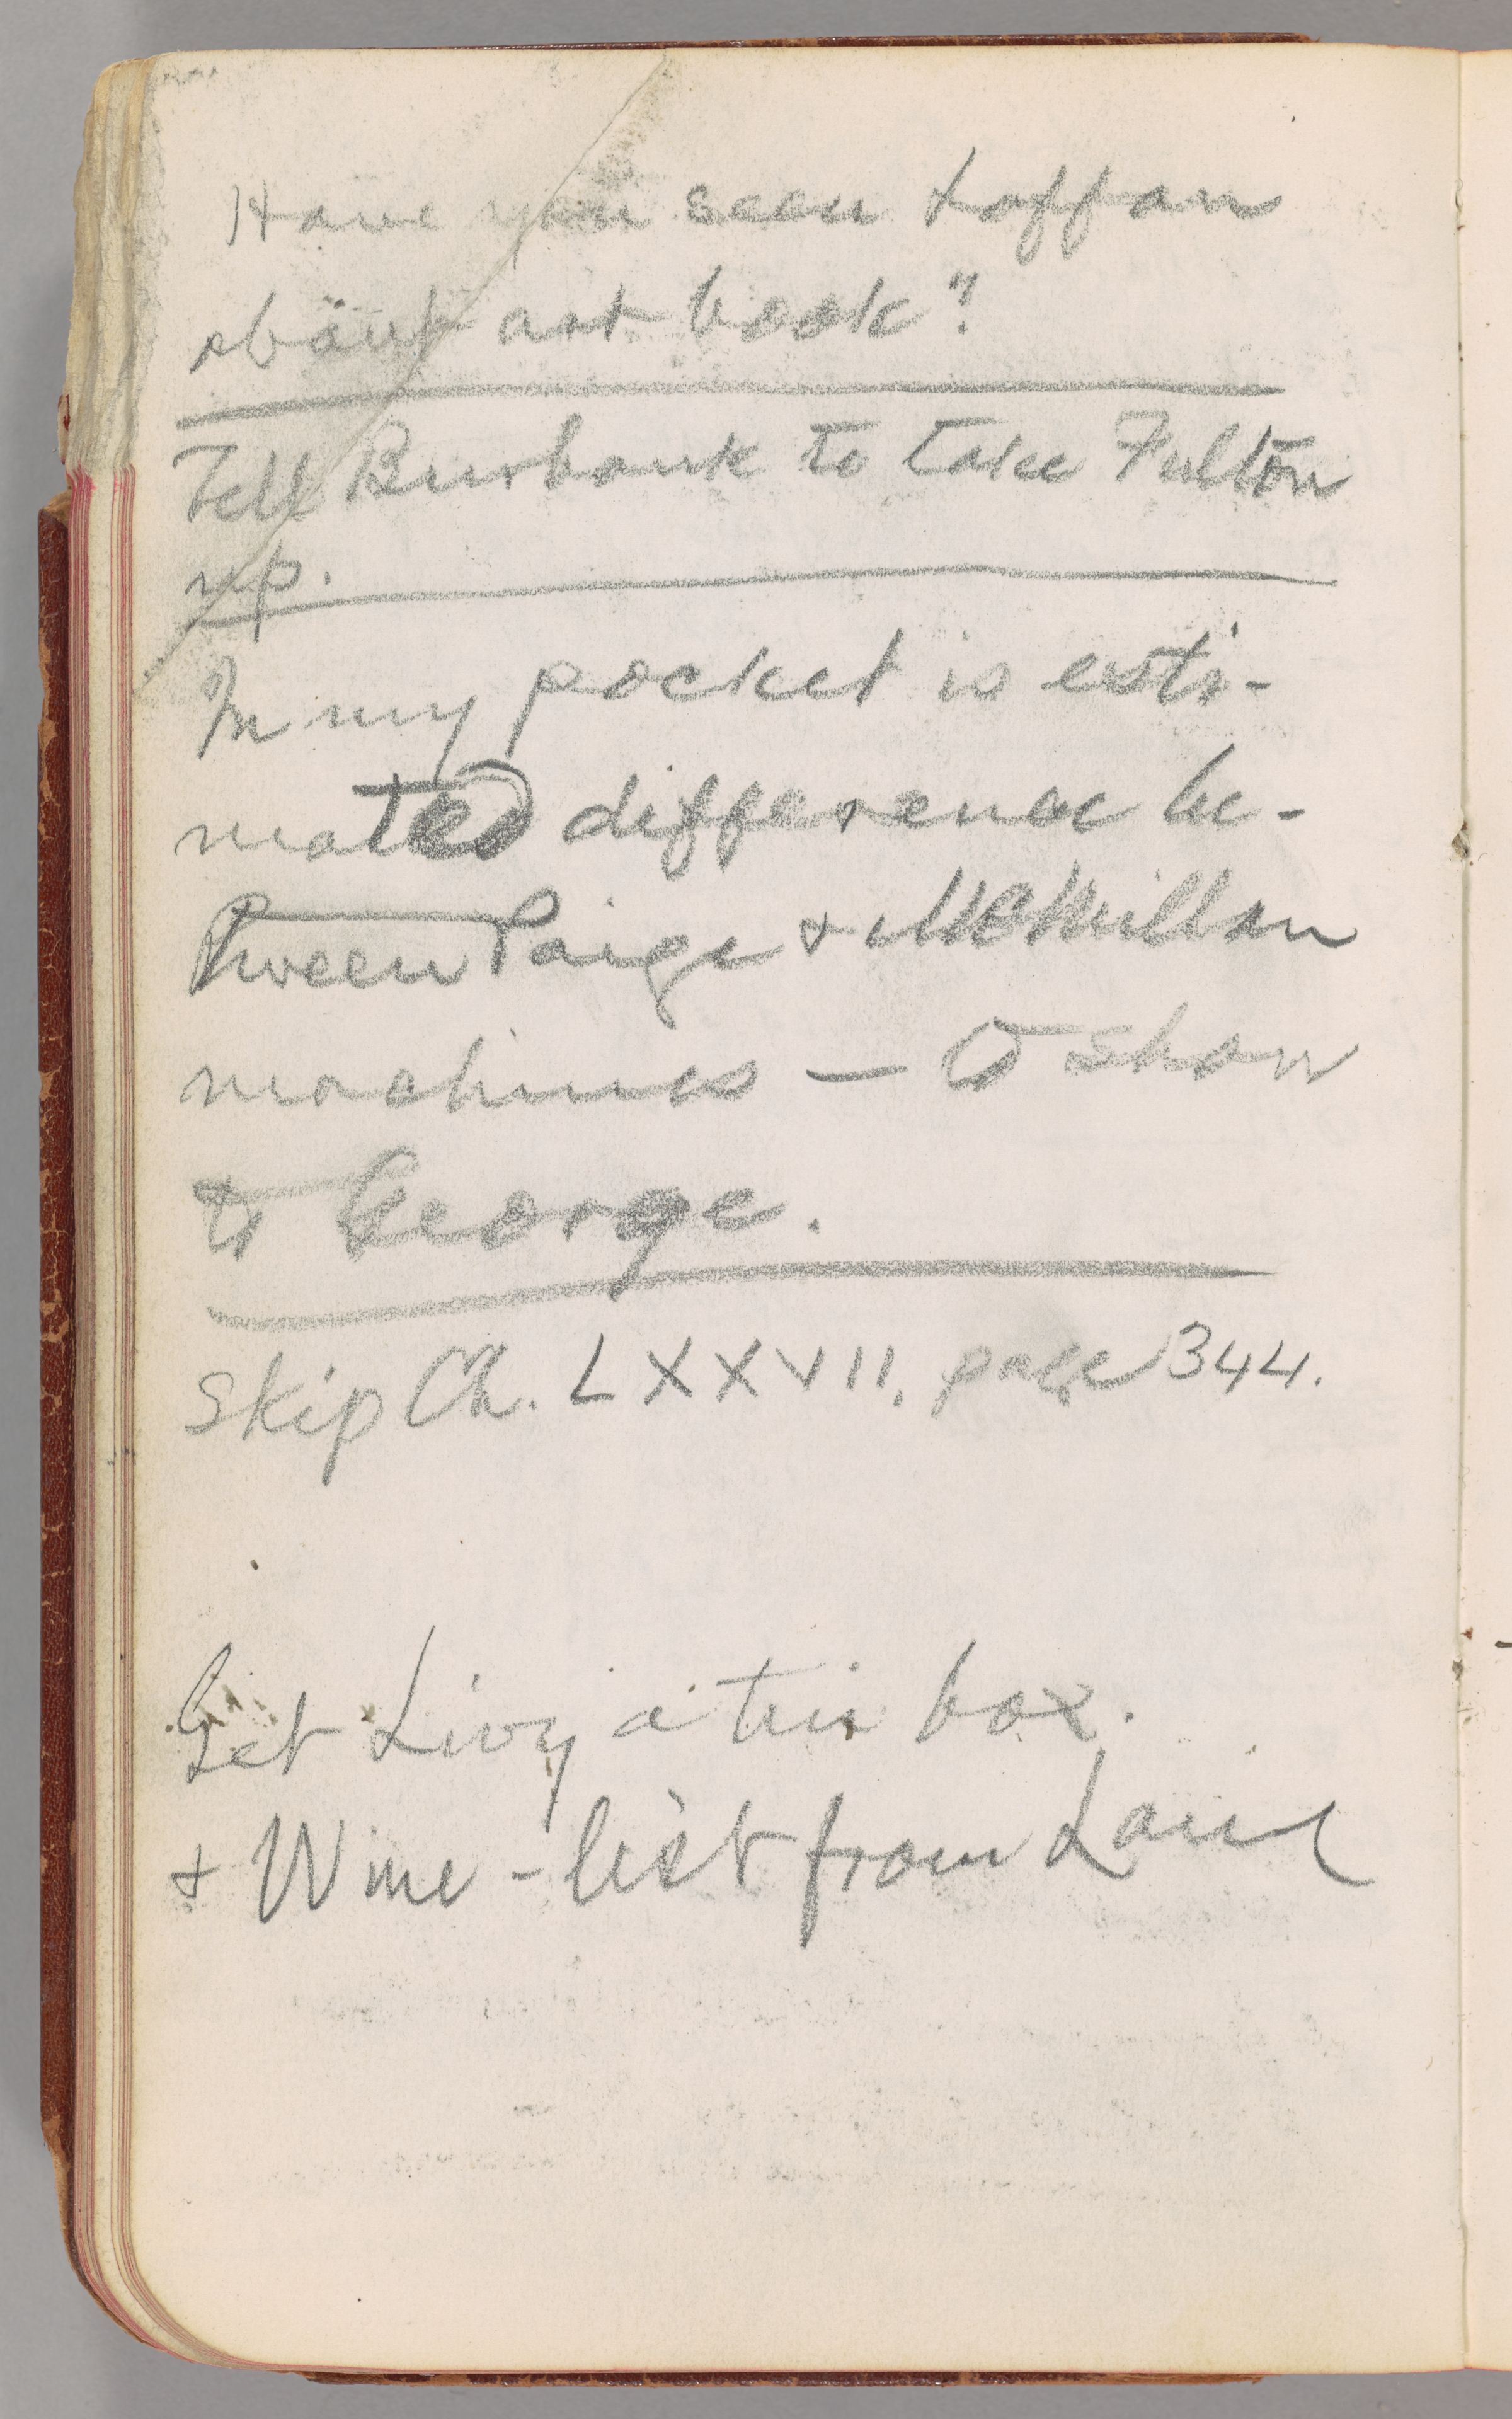 Have you seen Laffan
about art book?
Tell Burbank to take Fulton
up.
In my pocket is esti-
mated difference be-
tween Paige & McMillan
machines — to show
to George.
Skip Ch. LXXVII, page 344.
Get Livy a tin box.
& Wine-list from